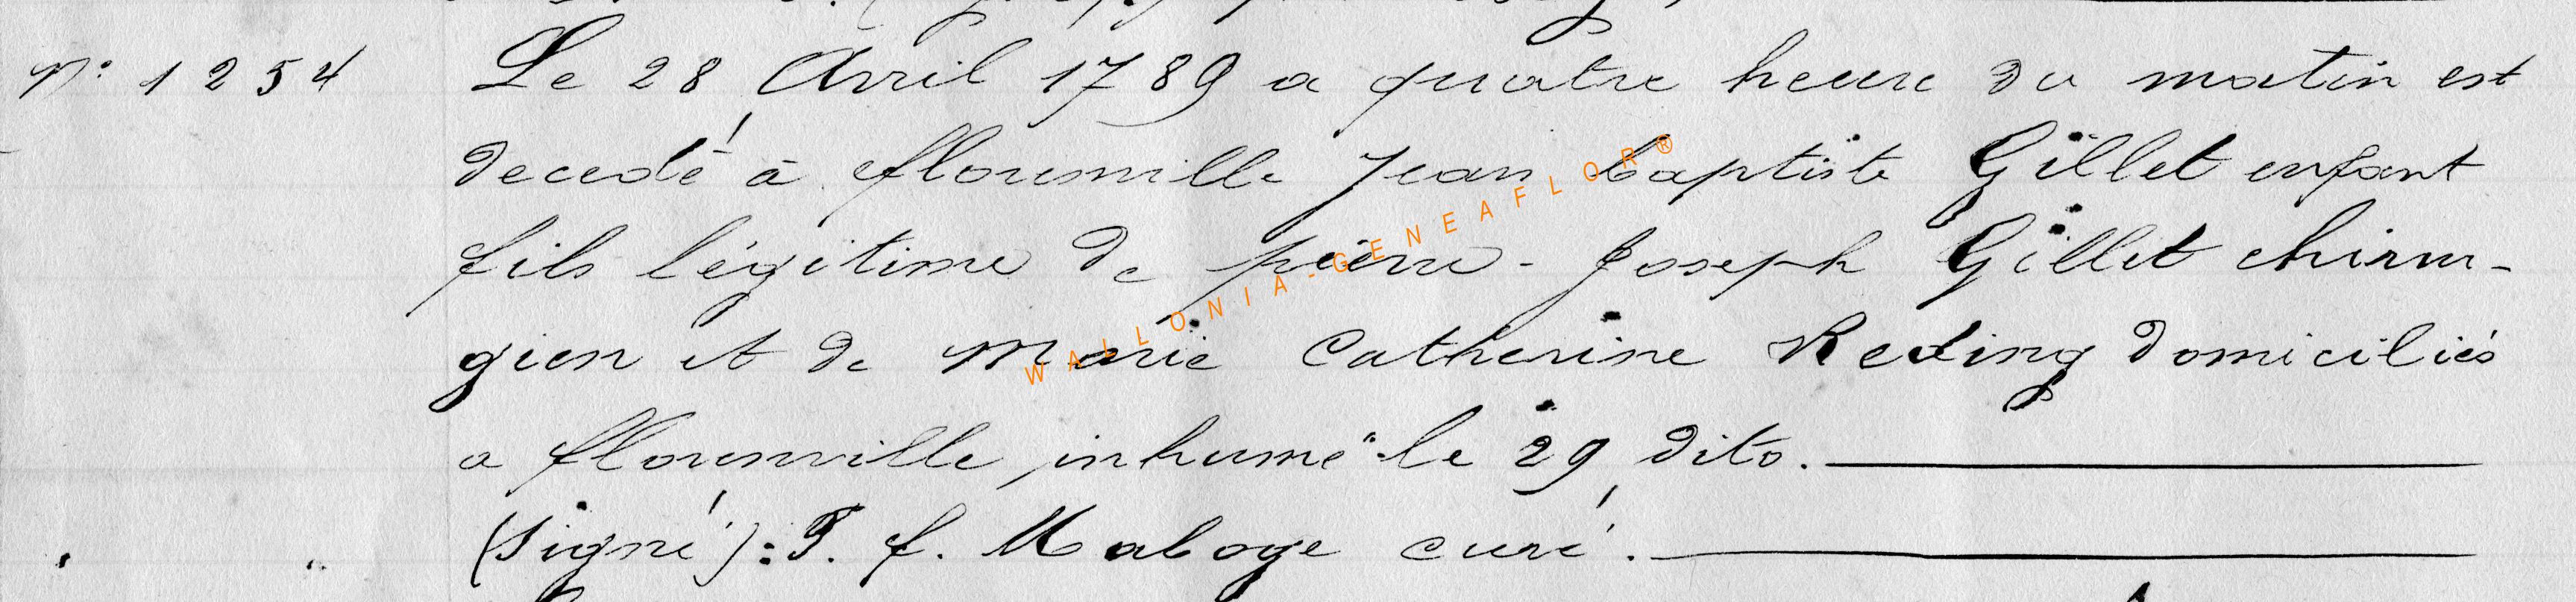 N° 1254 Le 28 Avril 1789 a quatre heure du matin est
decedé à florenville Jean baptiste Gillet enfant
fils légitime de pierre-Joseph Gillet chirur-
gien et de Marie Catherine Reding domiciliés
a florenville, inhumé le 29 dito.
(Signé): F. f. Maboge curé.
WALLONIA-GENEAFLOR®